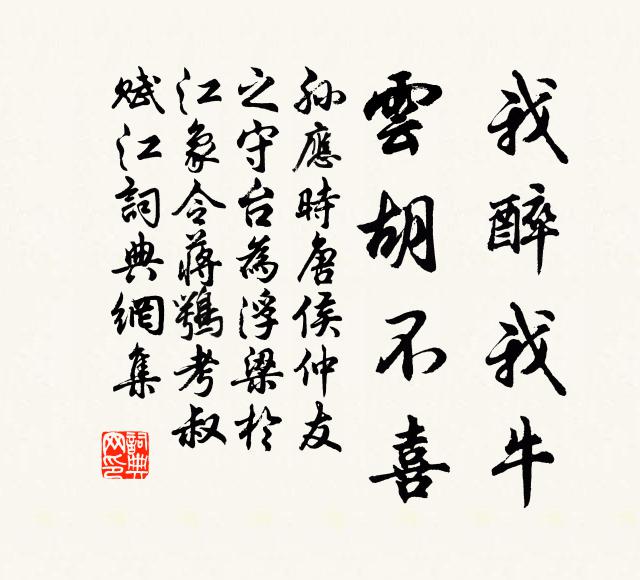 我醉我牛
雲胡不喜
孫應時唐侯仲友
之守台為浮梁於
江象令蔣鶚考叔
賦江詞典網集
詞典
网印